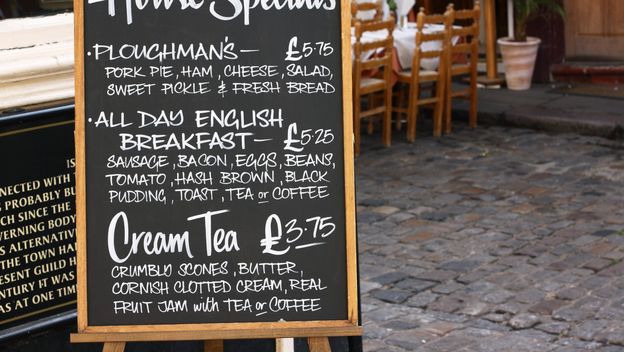 House Specials
·PLOUGHMAN'S— £5·75
PORK PIE, HAM, CHEESE, SALAD,
SWEET PICKLE & FRESH BREAD
·ALL DAY ENGLISH
BREAKFAST— £5·25
SAUSAGE, BACON, EGGS, BEANS,
TOMATO, HASH BROWN, BLACK
PUDDING, TOAST, TEA or COFFEE
Cream Tea £3·75
CRUMBLY SCONES, BUTTER,
CORNISH CLOTTED CREAM, REAL
FRUIT JAM with TEA or COFFEE
IS
NNECTED WITH T
PROBABLY BU
CH SINCE THE
VERNING BODY
S ALTERNATIV
THE TOWN HA
ESENT GUILD H
ENTURY IT WA
AS AT ONE TIM